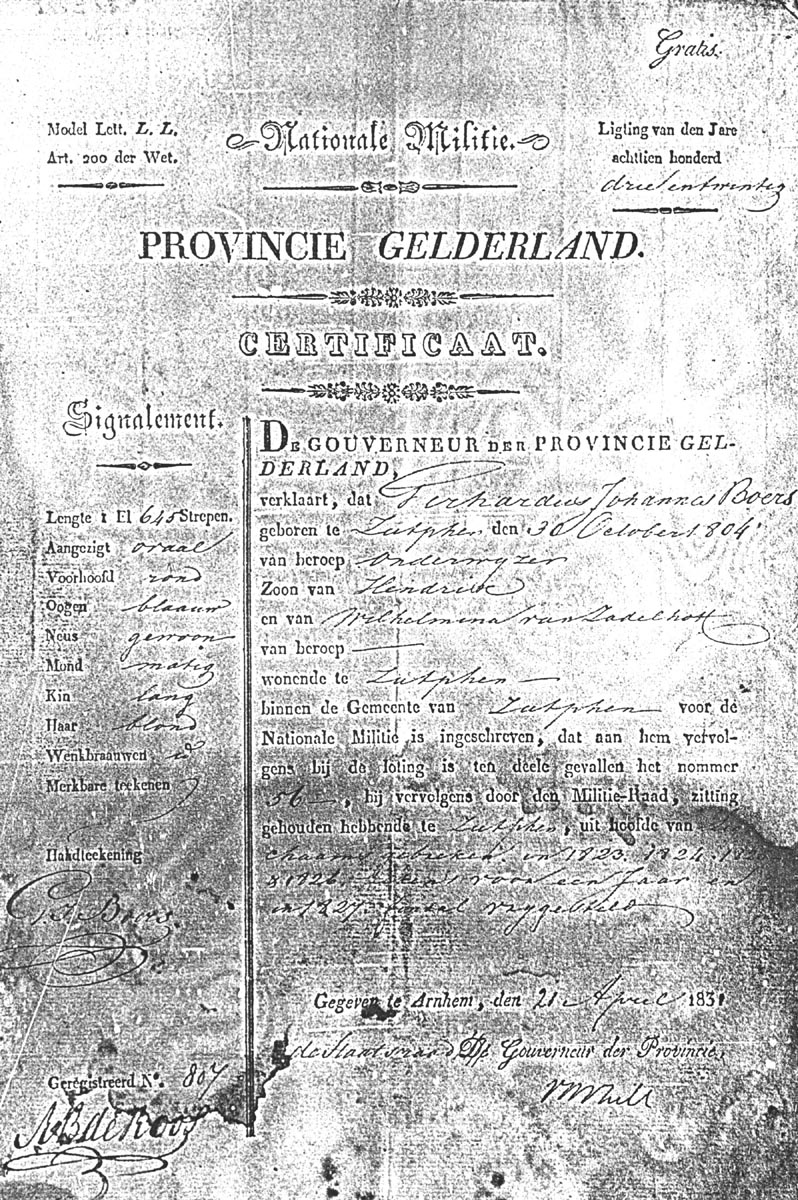 Gratis.
Model Lett. L. L.
Art. 200 der Wet.
Nationale Militie.
Ligting van den Jare
achttien honderd
drie en twintig
PROVINCIE GELDERLAND.
CERTIFICAAT.
Signalement.
Lengte 1 El 645 Strepen.
Aangezigt ovaal
Voorhoofd rond
Oogen blaauw
Neus gewoon
Mond matig
Kin lang
Haar blond
Wenkbraauwen id
Merkbare teekenen
Handteekening
Boers
Geregistreerd No. 807
DE GOUVERNEUR DER PROVINCIE GEL-
DERLAND,
verklaart, dat Gerhardus Johannes Boers
geboren te Zutphen den 30 October 1804
van beroep Onderwyzer
Zoon van Hendrik
en van Wilhelmina van Zadelhoff
van beroep —
wonende te Zutphen —
binnen de Gemeente van Zutphen — voor de
Nationale Militie is ingeschreven, dat aan hem vervol-
gens bij de loting is ten deele gevallen het nommer
56 —, hij vervolgens door den Militie-Raad, zitting
gehouden hebbende te Zutphen, uit hoofde van
in 1823. 1824.
& 1826. voor een Jaar en
in 1827. vrygesteld
Gegeven te Arnhem, den 21 April 1831
de Staatsraad Gouverneur der Provincie,